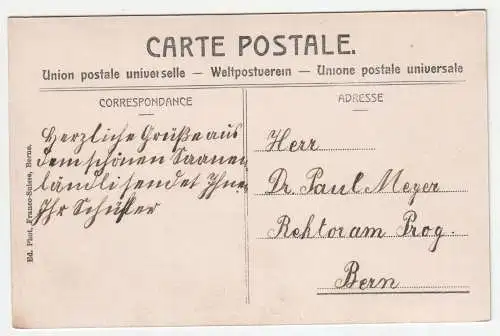 CARTE POSTALE.
Union postale universelle — Weltpostverein — Unione postale universale
CORRESPONDANCE
Herzliche Grüße aus
dem schönen Saanen
ländli sendet Ihnen
Ihr Schüler
ADRESSE
Herr
Dr. Paul Meyer
Rektor am Prog.
Bern
Ed. Phot. Franco-Suisse, Berne.